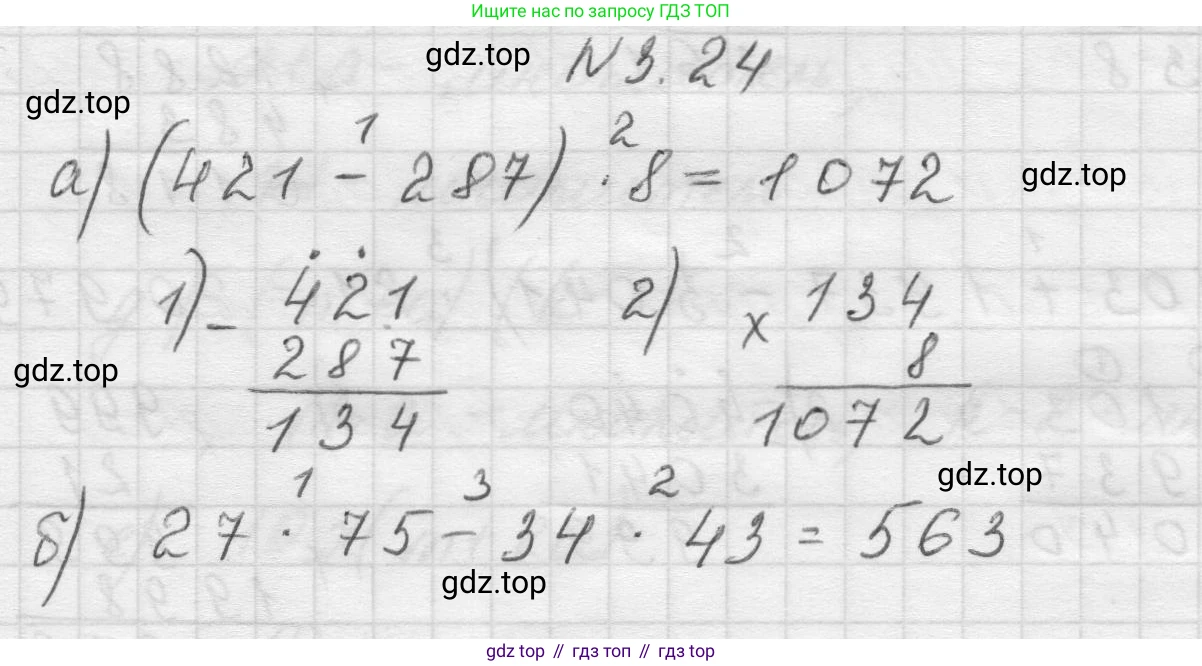 Ищите нас по запросу ГДЗ ТОП
gdz.top N 3.24
gdz.top
1 2
а) (421 - 287) · 8 = 1072 gdz.top
1) - 421 2) x 134
287 8
gdz.top
134 1072
gdz.top
1 3 2
б) 27 · 75 - 34 · 43 = 563
gdz.top
gdz.top // гдз топ // гдз top